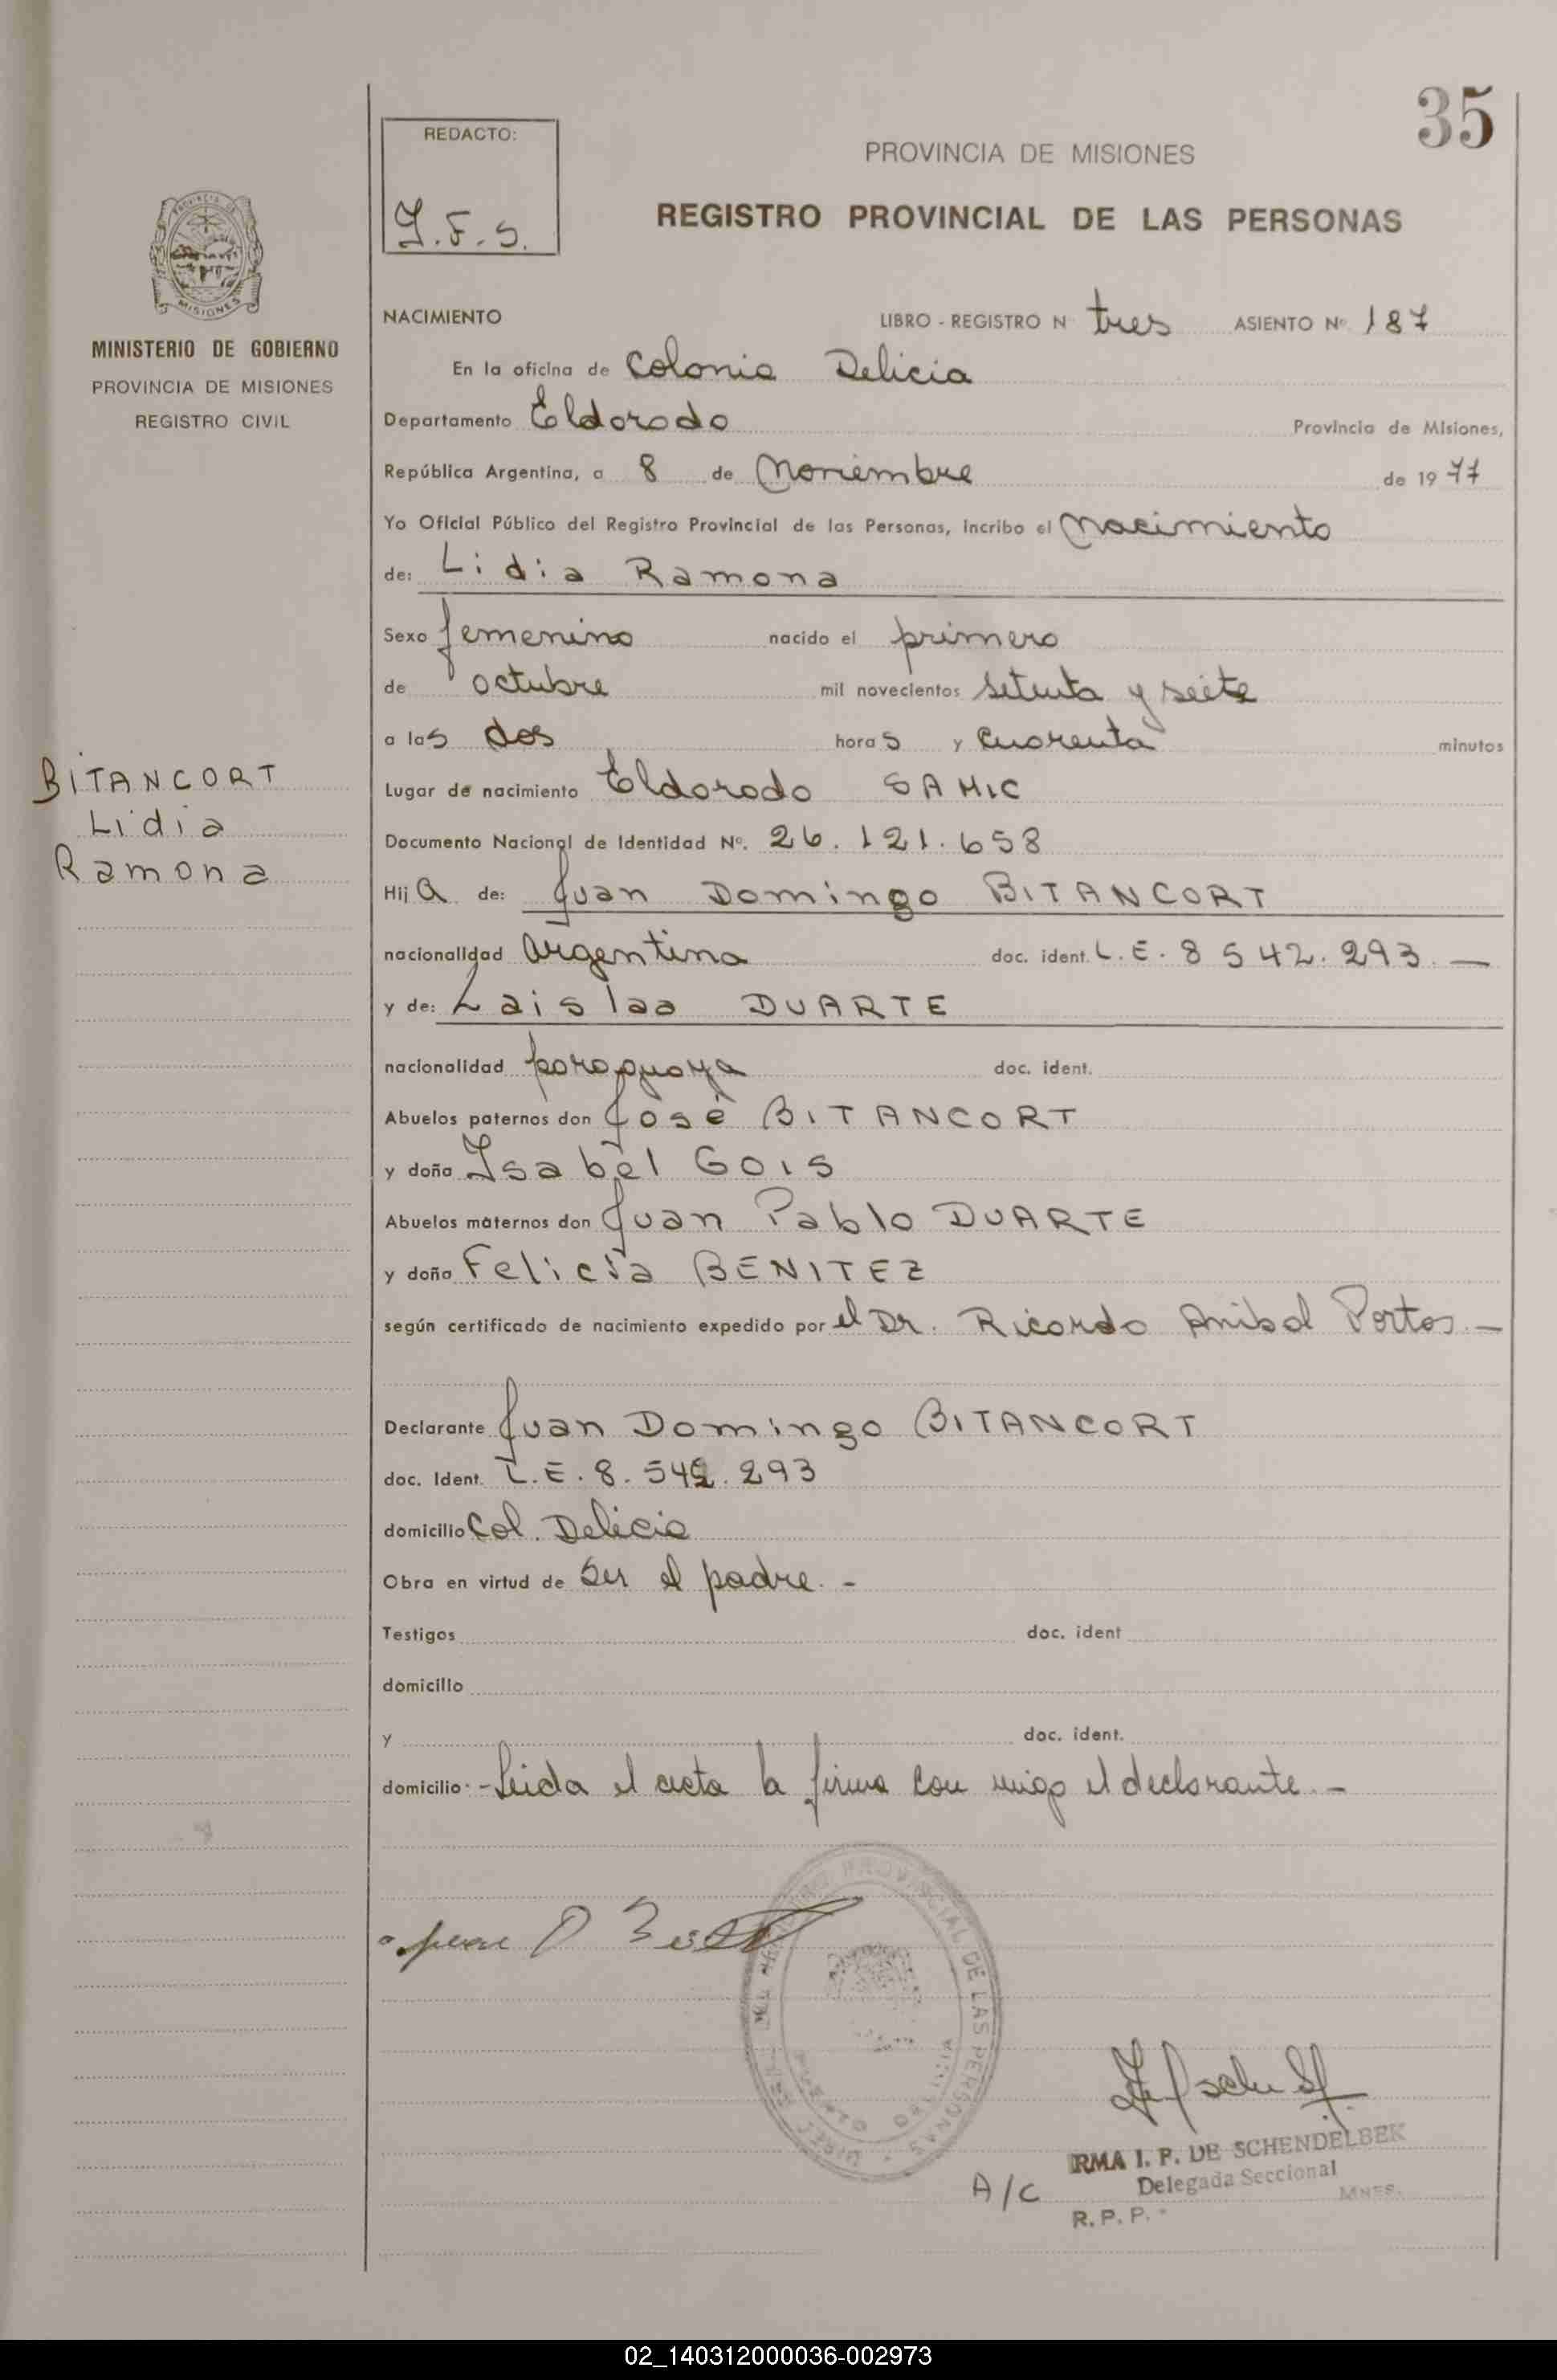 35
REDACTO:
I.F.S.
PROVINCIA DE MISIONES
REGISTRO PROVINCIAL DE LAS PERSONAS
MISIONES
MINISTERIO DE GOBIERNO
PROVINCIA DE MISIONES
REGISTRO CIVIL
BITANCORT
Lidia
Ramona
NACIMIENTO LIBRO - REGISTRO N tres ASIENTO Nº 187
En la oficina de Colonia Delicia
Departamento Eldorado Provincia de Misiones,
República Argentina, a 8 de Noviembre de 1977
Yo Oficial Público del Registro Provincial de las Personas, incribo el Nacimiento
de: Lidia Ramona
Sexo femenino nacido el primero
de octubre mil novecientos setenta y siete
a las dos horas y cuarenta minutos
Lugar de nacimiento Eldorado SAMIC
Documento Nacional de Identidad Nº. 26.121.658
Hija de: Juan Domingo BITANCORT
nacionalidad argentina doc. ident. L.E. 8 542.293.—
y de: Laislaa DUARTE
nacionalidad paraguaya doc. ident.
Abuelos paternos don José BITANCORT
y doña Isabel GOIS
Abuelos maternos don Juan Pablo DUARTE
y doña Felicia BENITEZ
según certificado de nacimiento expedido por el Dr. Ricardo Anibal Portas.—
Declarante Juan Domingo BITANCORT
doc. Ident. L.E. 8.542.293
domicilio Col. Delicia
Obra en virtud de ser el padre.-
Testigos doc. ident
domicilio
y doc. ident.
domicilio: -Leida el acta la firma con migo el declarante.-
PROVINCIAL DE LAS PERSONAS
PUERTO DELICIA
IRMA I. P. DE SCHENDELBEK
A/C Delegada Seccional
R. P. P. MNES.
02_140312000036-002973